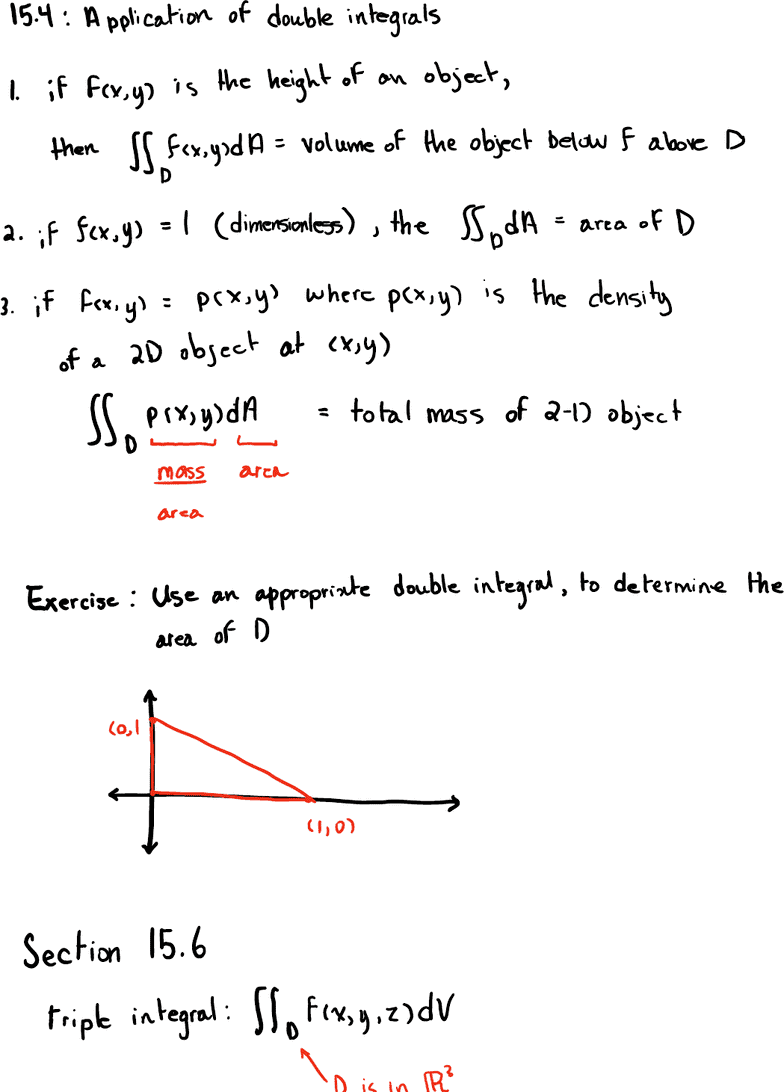 15.4: Application of double integrals
1. if f(x,y) is the height of an object,
then ∬_D f(x,y)dA = volume of the object below f above D
2. if f(x,y) = 1 (dimensionless), the ∬_D dA = area of D
3. if f(x,y) = p(x,y) where p(x,y) is the density
of a 2D object at (x,y)
∬_D p(x,y)dA = total mass of 2-D object
mass area
area
Exercise: Use an appropriate double integral, to determine the
area of D
(0,1
(1,0)
Section 15.6
triple integral: ∬_D f(x,y,z)dV
D is in ℝ³